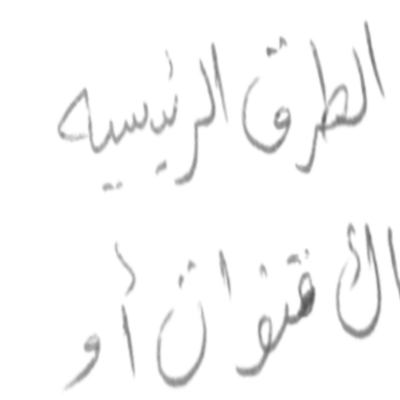 الطرق الرئيسيه
اك قنوات أو